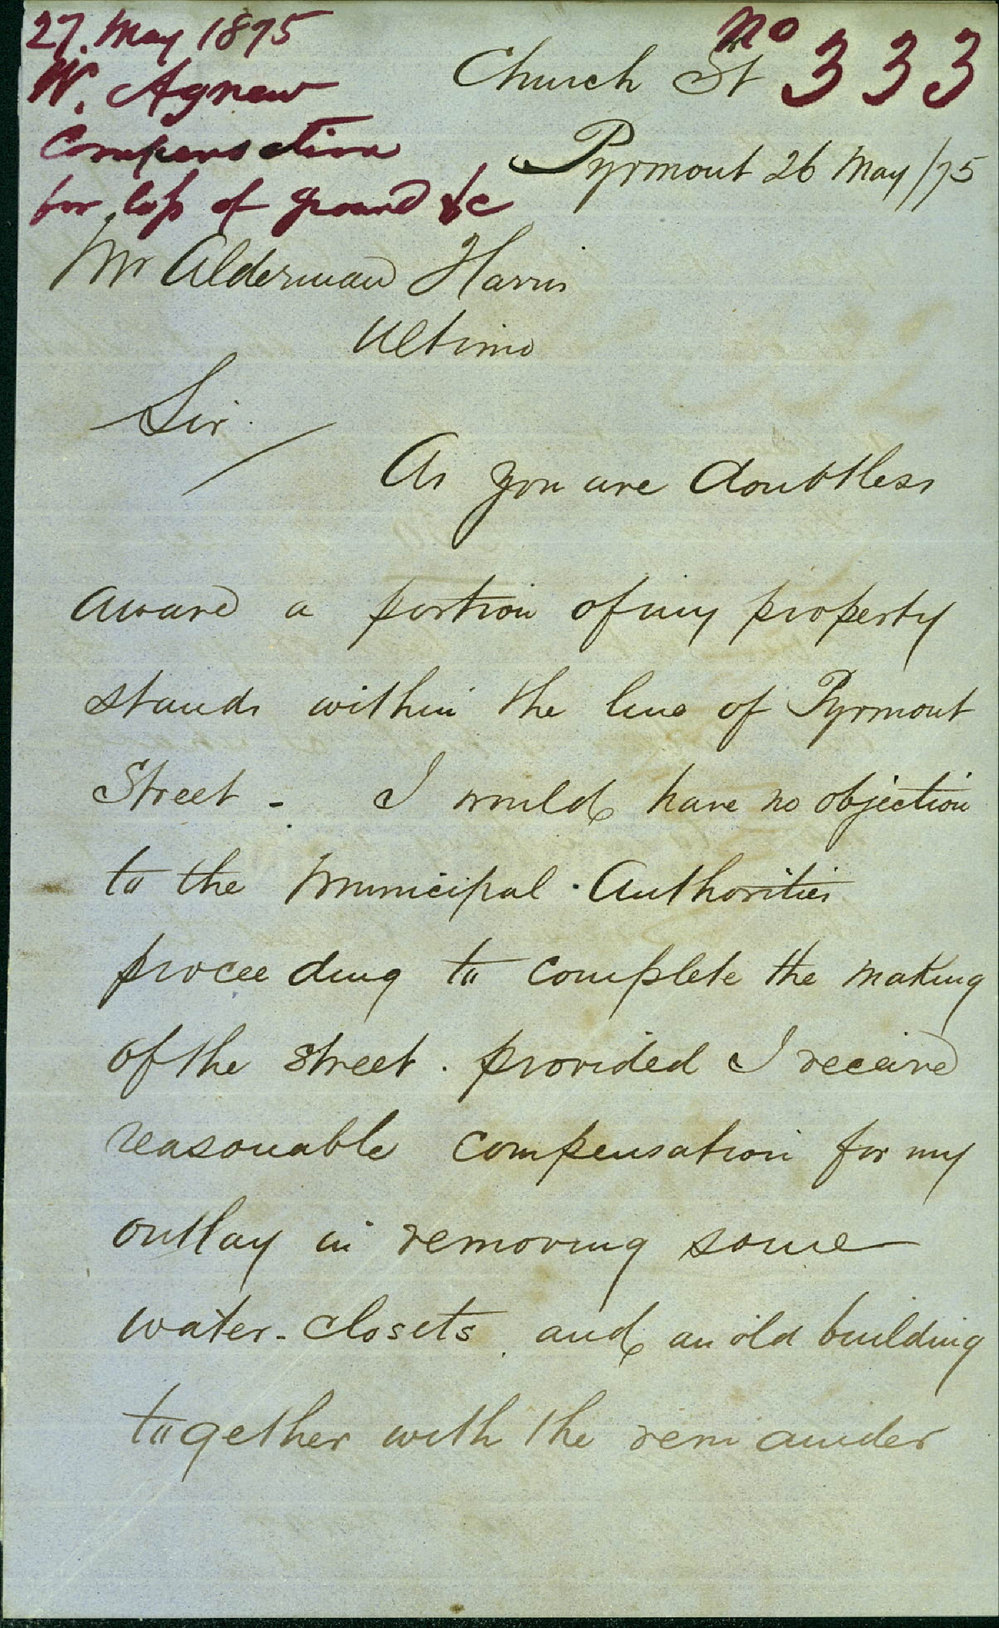 27. May 1875
No 333
W. Agnew
Compensation
for loss of ground &c
Church St
Pyrmont 26 May /75
Mr Alderman Harris
Ultimo
Sir.
As you are doubtless
aware a portion of my property
stands within the line of Pyrmont
Street - I would have no objection
to the Municipal Authorities
proceeding to complete the making
of the street. provided I receive
reasonable compensation for my
outlay in removing some
water-closets and an old building
together with the remainder